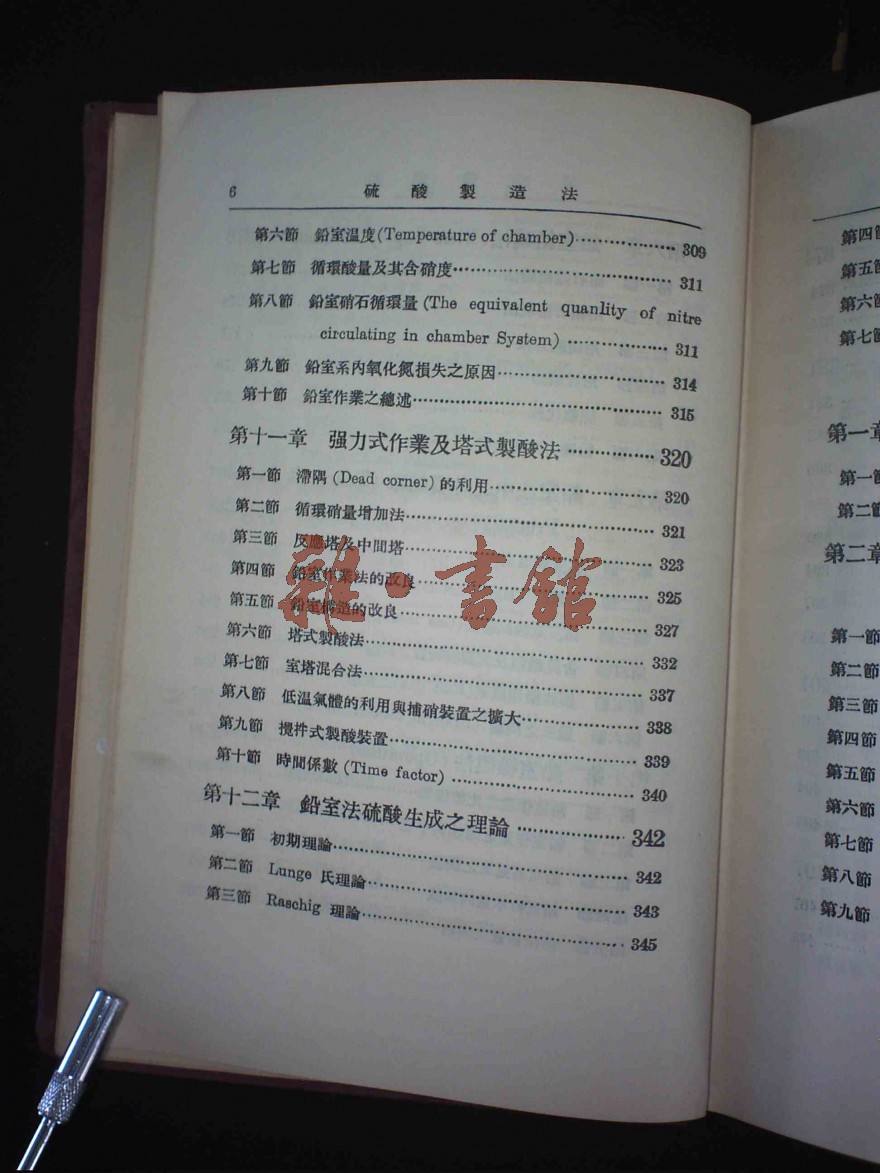 6 硫酸製造法
第六節 鉛室温度(Temperature of chamber)·················· 309
第七節 循環酸量及其含硝度·················· 311
第八節 鉛室硝石循環量(The equivalent quanlity of nitre
circulating in chamber System)·················· 311
第九節 鉛室系內氧化氮損失之原因·················· 314
第十節 鉛室作業之總述·················· 315
第十一章 强力式作業及塔式製酸法·················· 320
第一節 滯隅(Dead corner)的利用·················· 320
第二節 循環硝量增加法·················· 321
第三節 反應塔及中間塔·················· 323
第四節 鉛室作業法的改良·················· 325
第五節 鉛室構造的改良·················· 327
第六節 塔式製酸法·················· 332
第七節 室塔混合法·················· 337
第八節 低温氣體的利用與捕硝裝置之擴大·················· 338
第九節 攪拌式製酸裝置·················· 339
第十節 時間係數(Time factor)·················· 340
第十二章 鉛室法硫酸生成之理論·················· 342
第一節 初期理論·················· 342
第二節 Lunge 氏理論·················· 343
第三節 Raschig 理論·················· 345
雜·書館
第四
第五
第六
第七
第一章
第一
第二
第二章
第一節
第二節
第三節
第四節
第五節
第六節
第七節
第八節
第九節